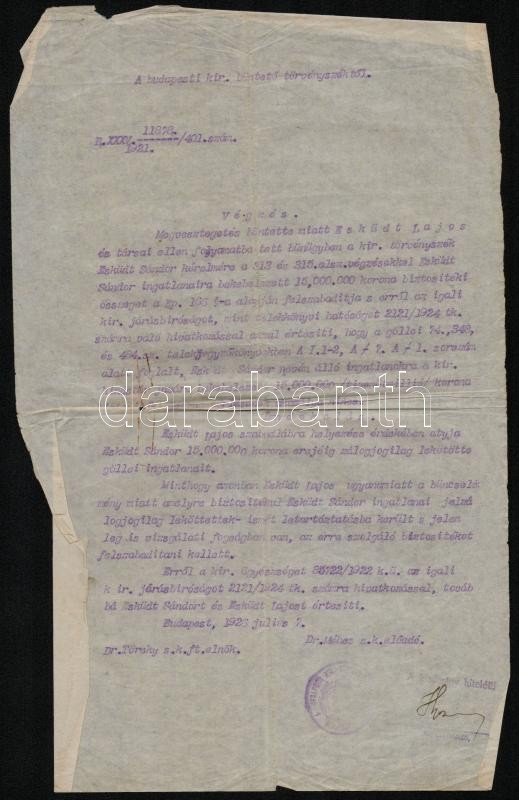 A budapesti kir. büntető törvényszéktől.
B.XXXV. 11878./1921. /401.szám.
Végzés.
Megvesztegetés büntette miatt Esküdt Lajos
és társai ellen folyamatba tett bűnügyben a kir. törvényszék
Esküdt Sándor kérelmére a 313 és 315.alsz.végzésekkel Esküdt
Sándor ingatlanaira bekebelezett 15,000.000 korona biztosítéki
összeget a Bp. alapján felszabadítja s erről az igali
kir. járásbíróságot, mint telekkönyvi hatóságot 2121/1924 tk.
számra való hivatkozással azzal értesíti, hogy a göllei
és telekjegyzőkönyvekben A I.1-2, A + 7. A + 1. sorszám
alatt foglalt, Esküdt Sándor nevén álló ingatlanokra a kir.
korona
darabanth
Esküdt Lajos szabadlábra helyezése érdekében atyja
Esküdt Sándor 15.000.000 korona erejéig zálogjogilag lekötötte
göllei ingatlanait.
Minthogy azonban Esküdt Lajos ugyanamiatt a büncselek
mény miatt amelyre biztosítékul Esküdt Sándor ingatlanai jelzá
logjogilag leköttettek- ismét letartóztatásba került s jelen
leg is vizsgálati fogságban van, az erre szolgáló biztosítékot
felszabadítani kellett.
Erről a kir. ügyészséget 83722/1922 k.ü. az igali
k ir. járásbíróságot 2121/1924 tk. számra hivatkozással, továb
bá Esküdt Sándort és Esküdt Lajost értesíti.
Budapest, 1926 július 7.
Dr.Méhes s.k.előadó.
Dr.Töreky s.k.ft.elnök.
A hiteléül